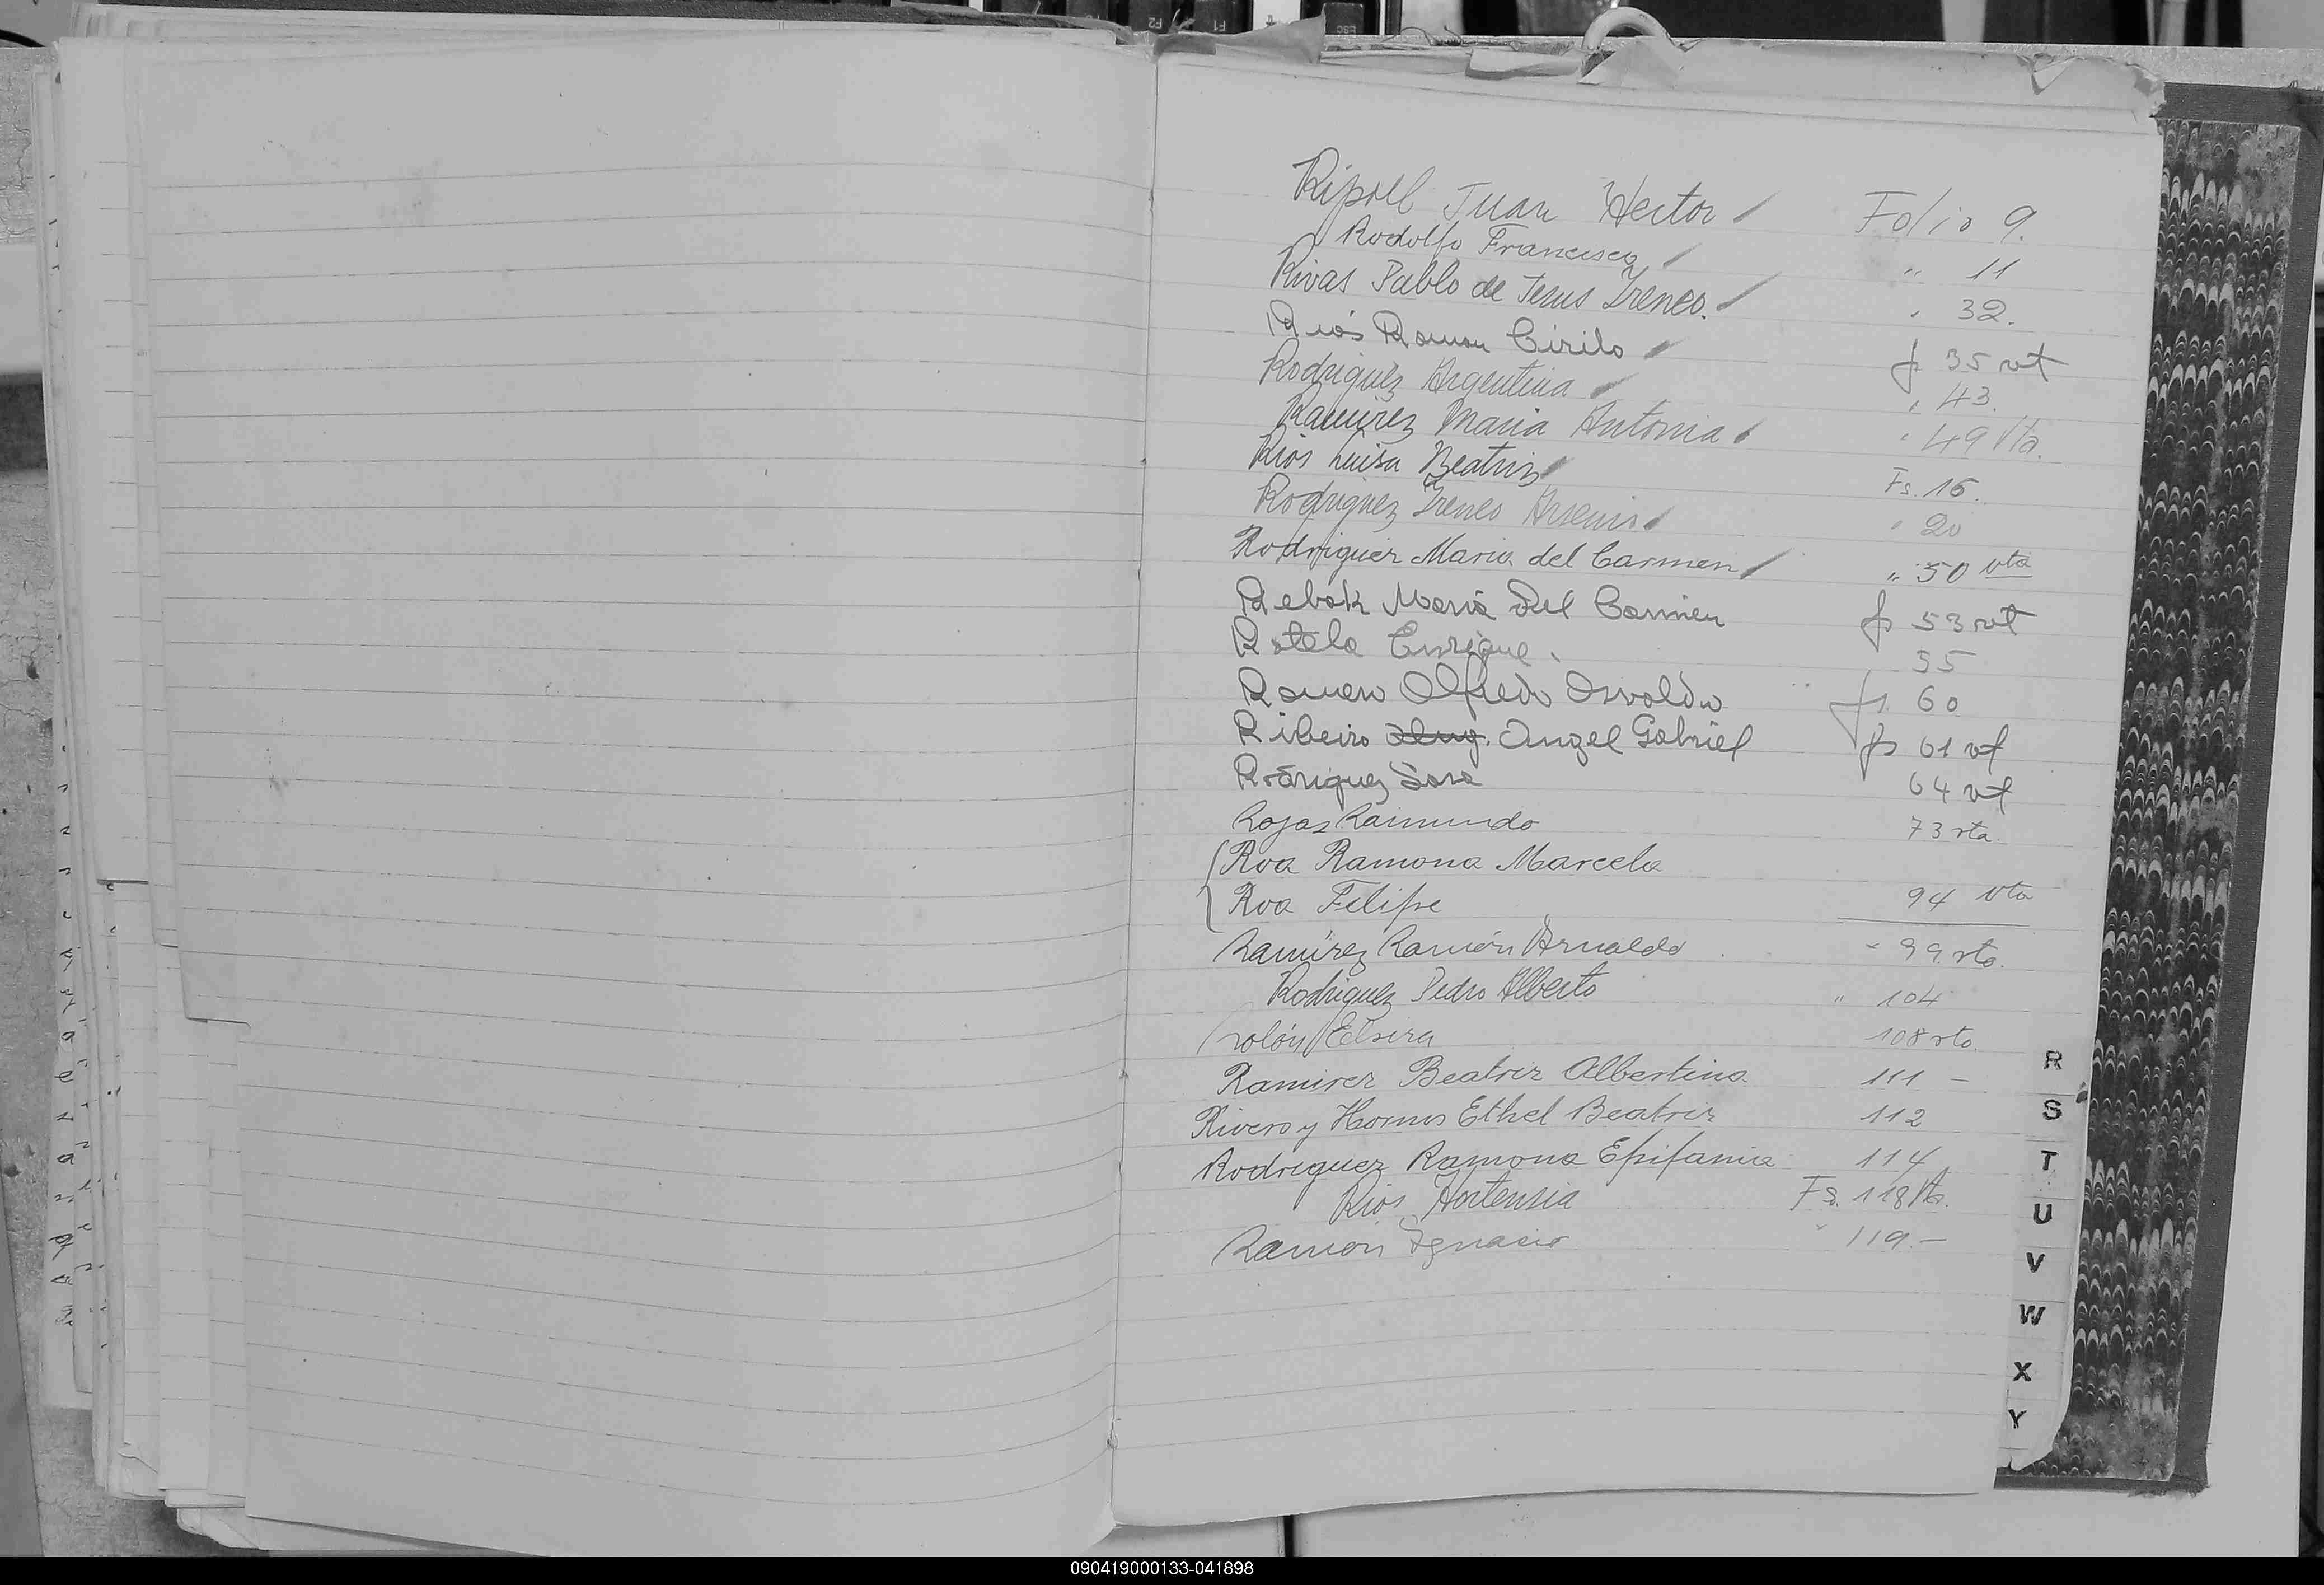 Ripoll Juan Hector / Folio 9.
Rodolfo Francisco / " 11
Rivas Pablo de Jesus Ireneo. / " 32.
Rios Ramon Cirilo / fs 35 vt
Rodriguez Argentina / " 43.
Ramirez Maria Antonia " 49 Vta.
Rios Luisa Beatriz / Fs. 16.
Rodriguez Ireneo Arsenio / " 20
Rodriguez Maria del Carmen / " 50 vta
Rebak Maria Del Carmen fs 53 vt
Rotela Enrique. 55
Romero Alfredo Osvaldo fs. 60
Ribeiro Angel Gabriel fs 61 vt
Rodriguez Sara 64 vt
Rojas Raimundo 73 vta.
Roa Ramona Marcela
Roa Felipe 94 vta
Ramírez Ramón Arnaldo " 99 vta.
Rodriguez Pedro Alberto " 104
Rolón Elvira 108 vta.
Ramirez Beatriz Albertina 111 -
Rivero y Hornos Ethel Beatriz 112
Rodriguez Ramona Epifania 114
Rios Hortensia Fs. 118 Vta.
Ramón Ignacio " 119.-
R
S
T
U
V
W
X
Y
090419000133-041898